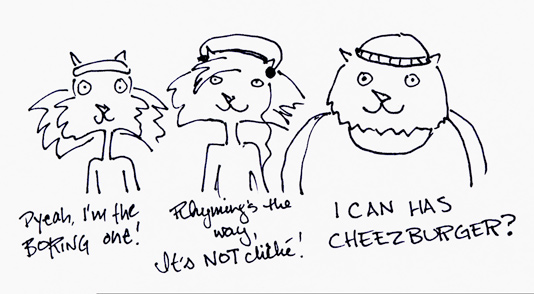 Dyeah, I'm the
BORING one!
Rhyming's the
way,
It's NOT cliché!
I CAN HAS
CHEEZBURGER?